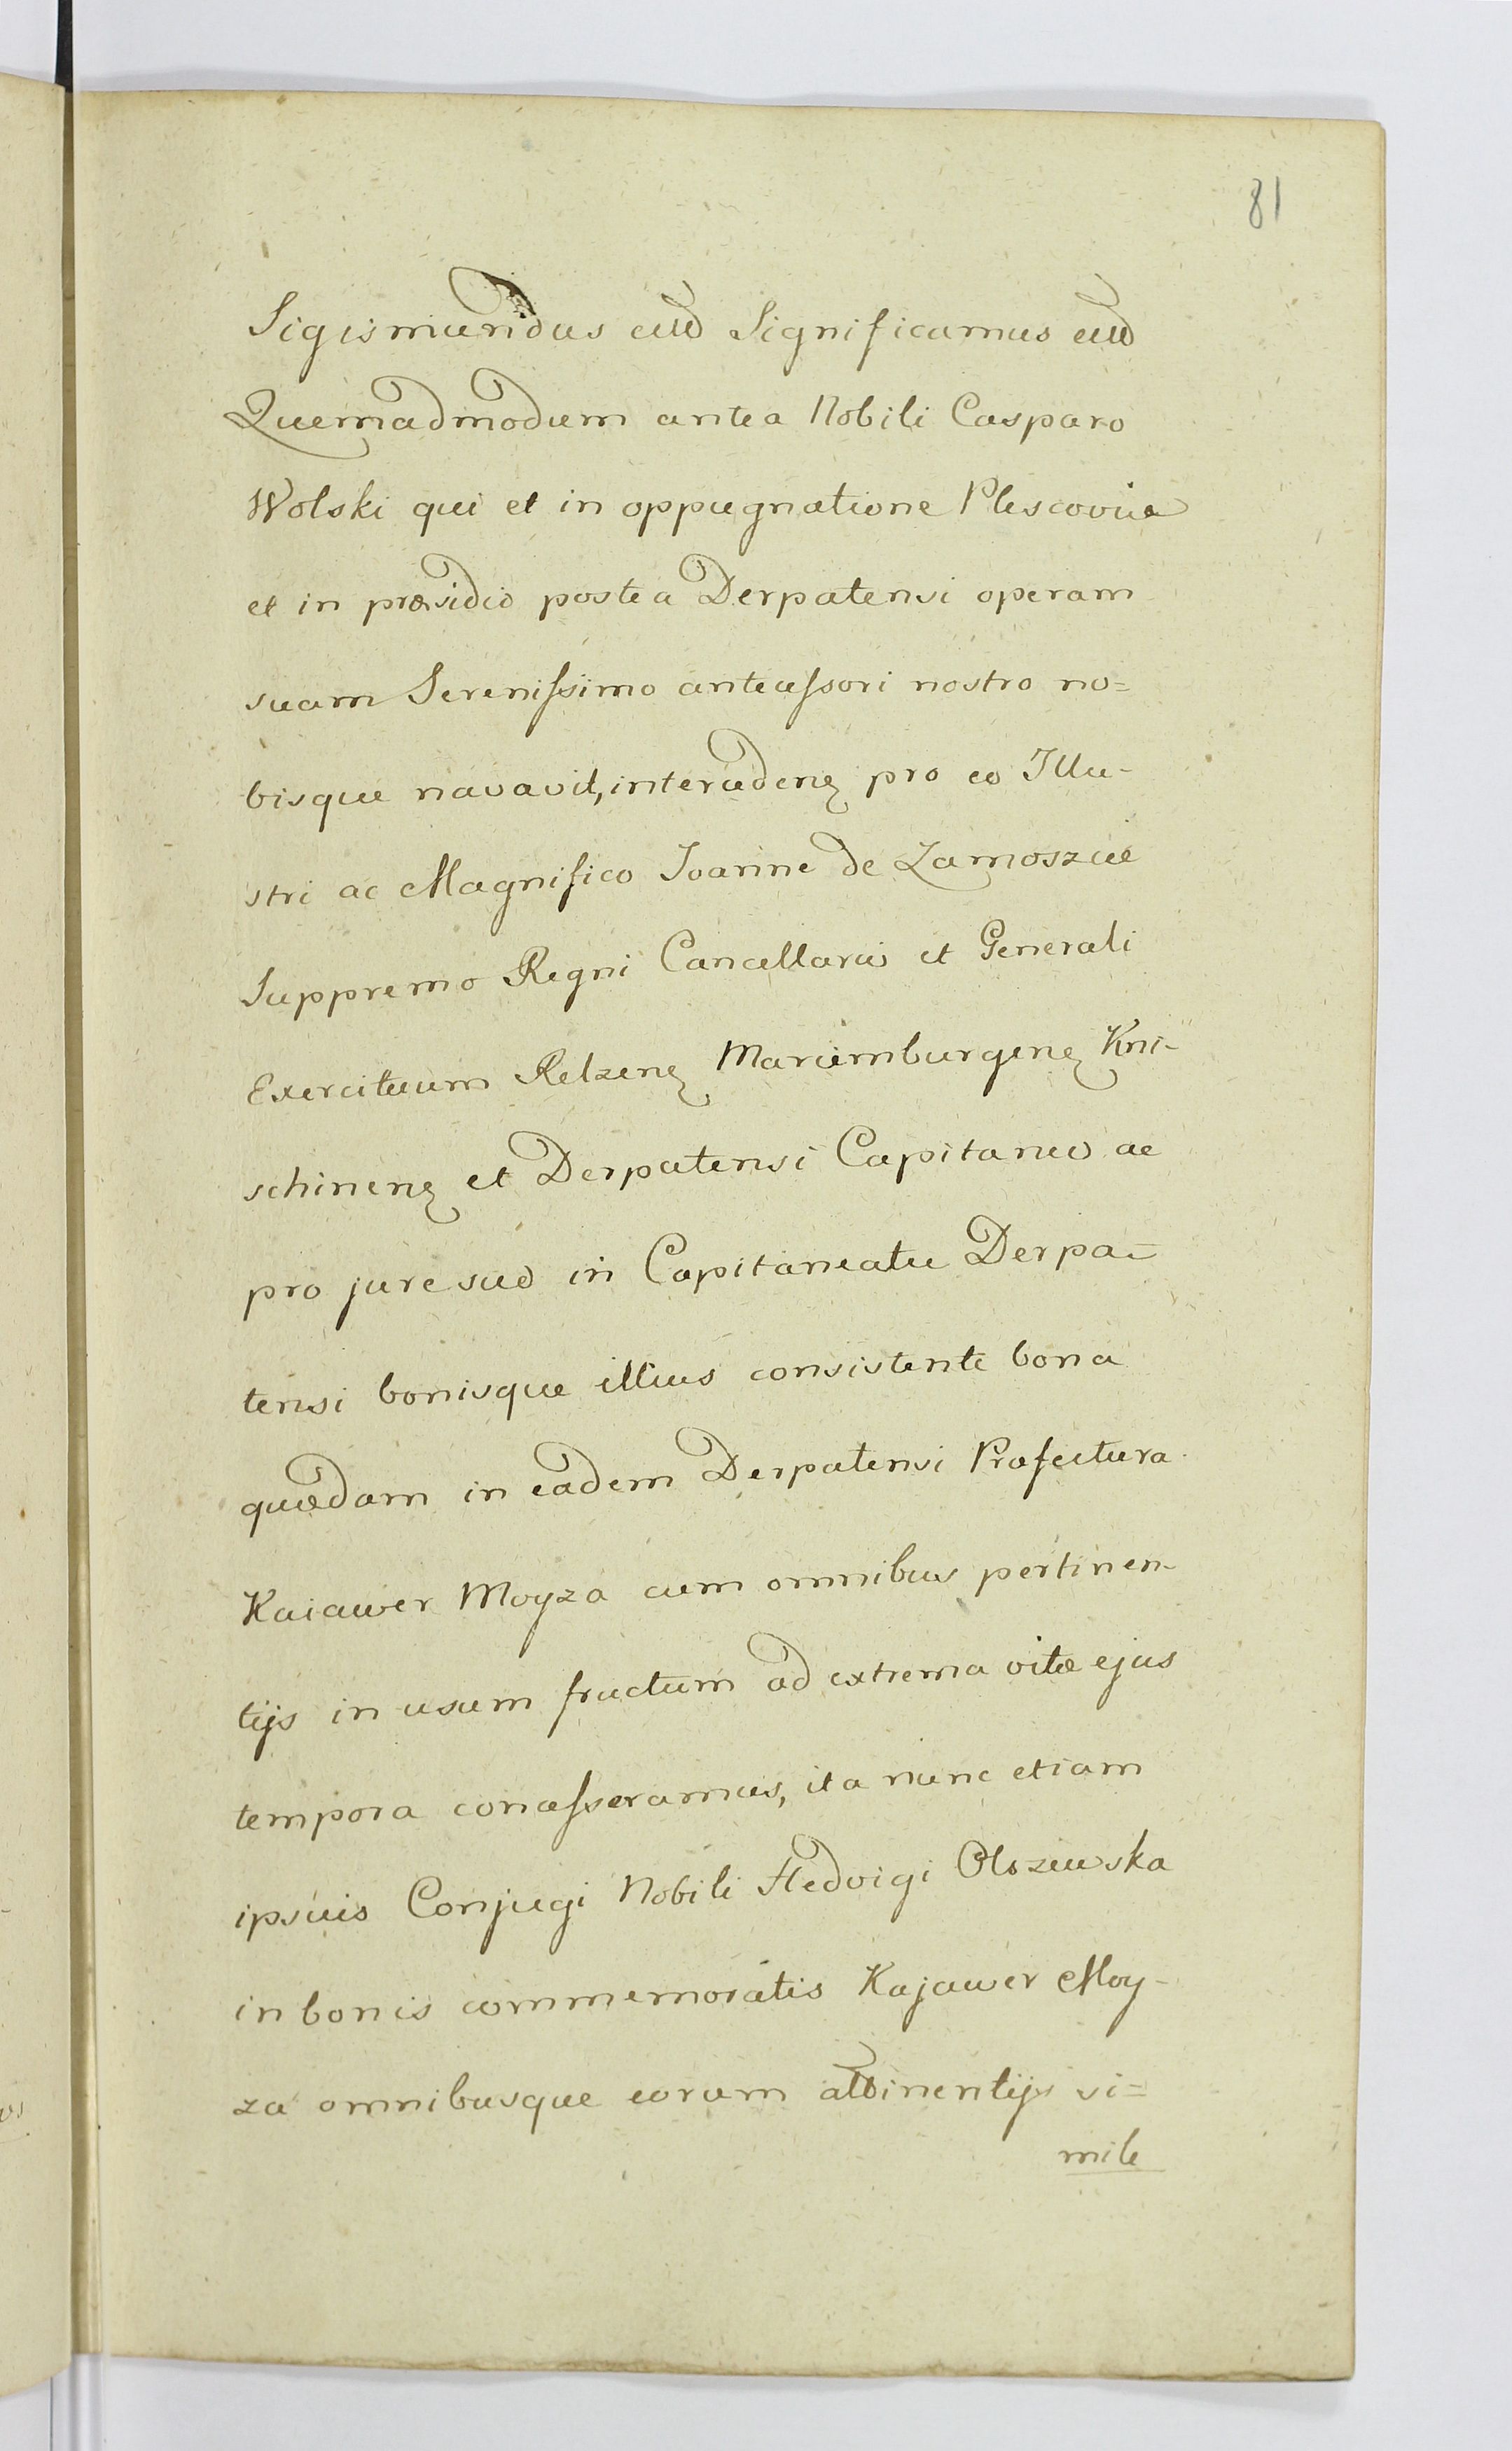 81
Sigismundus etc̃ Significamus etc̃
Quemadmodum antea Nobili Casparo
Wolski qui et in oppugnatione Plescoviæ
et in præsidio postea Derpatensi operam
suam Serenissimo antecessori nostro no=
bisque navavit, intercedenȩ pro eo Illu-
stri ac Magnifico Joanne de Zamoszcie
Suppremo Regni Cancellario et Generali
Exercituum Relzenȩ Mariemburgenȩ Kni-
schinenȩ et Derpatensi Capitaneo ac
pro jure suo in Capitaneatu Derpa=
tensi bonisque illius consistente bona
quædam in eadem Derpatensi Præfectura
Kaiawer Moyza cum omnibus pertinen-
tijs in usum fructum ad extrema vitæ ejus
tempora concesseramus, ita nunc etiam
ipsius Conjugi Nobili Hedvigi Olszewska
in bonis commemoratis Kajawer Moy-
za omnibusque eorum attinentijs si=
mile